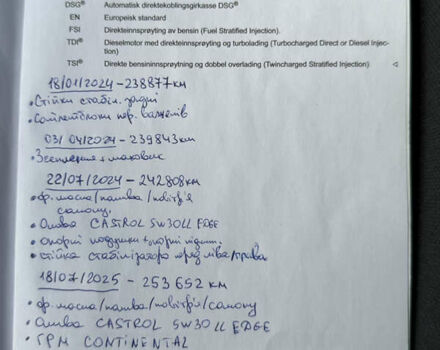 DSG® Automatisk direktekoblingsgirkasse DSG®
EN Europeisk standard
FSI Direkteinnsprøyting av bensin (Fuel Stratified Injection).
TDI® Dieselmotor med direkteinnsprøyting og turbolading (Turbocharged Direct or Diesel Injec-
tion)
TSI® Direkte bensininnsprøytning og dobbel overlading (Twincharged Stratified Injection)
18/01/2024 - 238877км
• Стійки стабіл. задні
• Сайлентблоки пер. важелів
03/04/2024 - 239843км
• Зчеплення + маховик
22/07/2024 - 242808км
• ф. масла/палива/повітр'я
салону.
• Олива CASTROL 5W30LL EDGE
• опорні подушки + опорні підшип.
• стійка стабілізатора перед ліва/права
18/07/2025 - 253 652 км
• ф. масла/палива/повітр'я/салону
• Олива CASTROL 5W30LL EDGE
• ГРМ CONTINENTAL